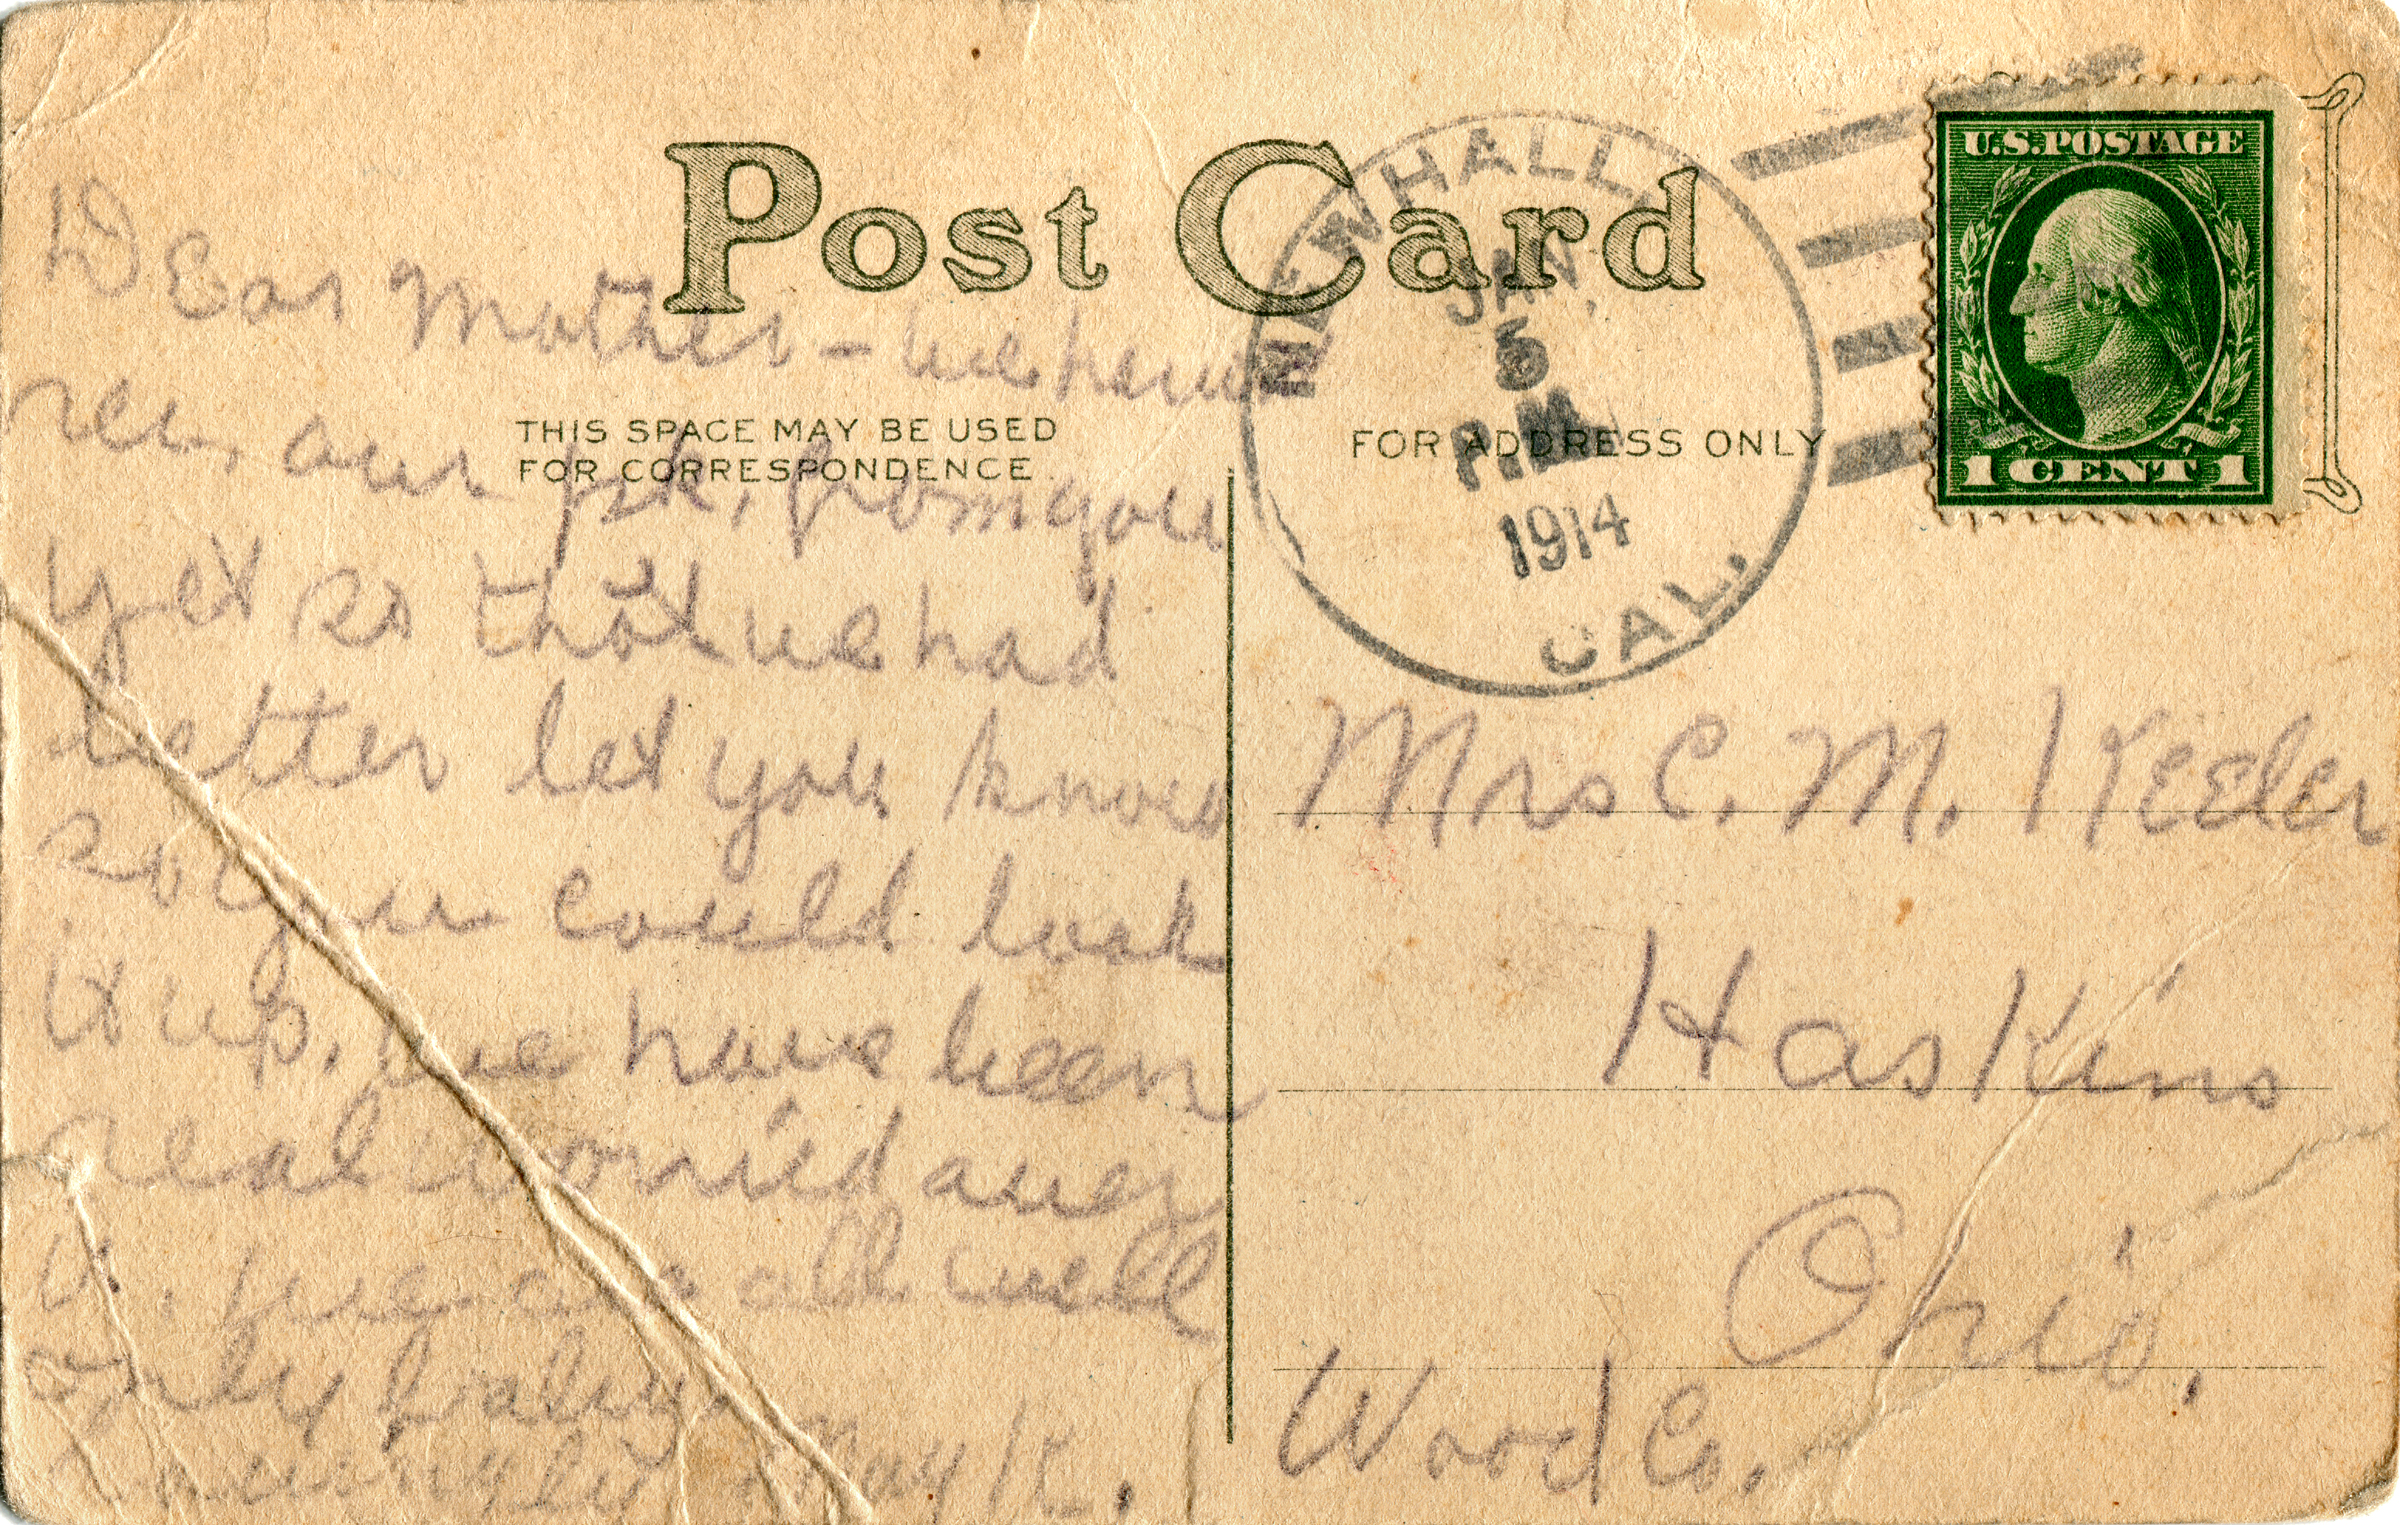 Post Card
THIS SPACE MAY BE USED
FOR CORRESPONDENCE.
FOR ADDRESS ONLY
NEWHALL,
JAN.
5
P.M.
1914
CAL.
U.S. POSTAGE
1 CENT 1
Dear Mother - we haven
rec. our pk, from you
yet so that we had
better let you know
so you could look
it up, we have been
real worried over
it, we are all well
only baby
May K.
Mrs C. M. Keeler
Haskins
Ohio.
Wood Co.